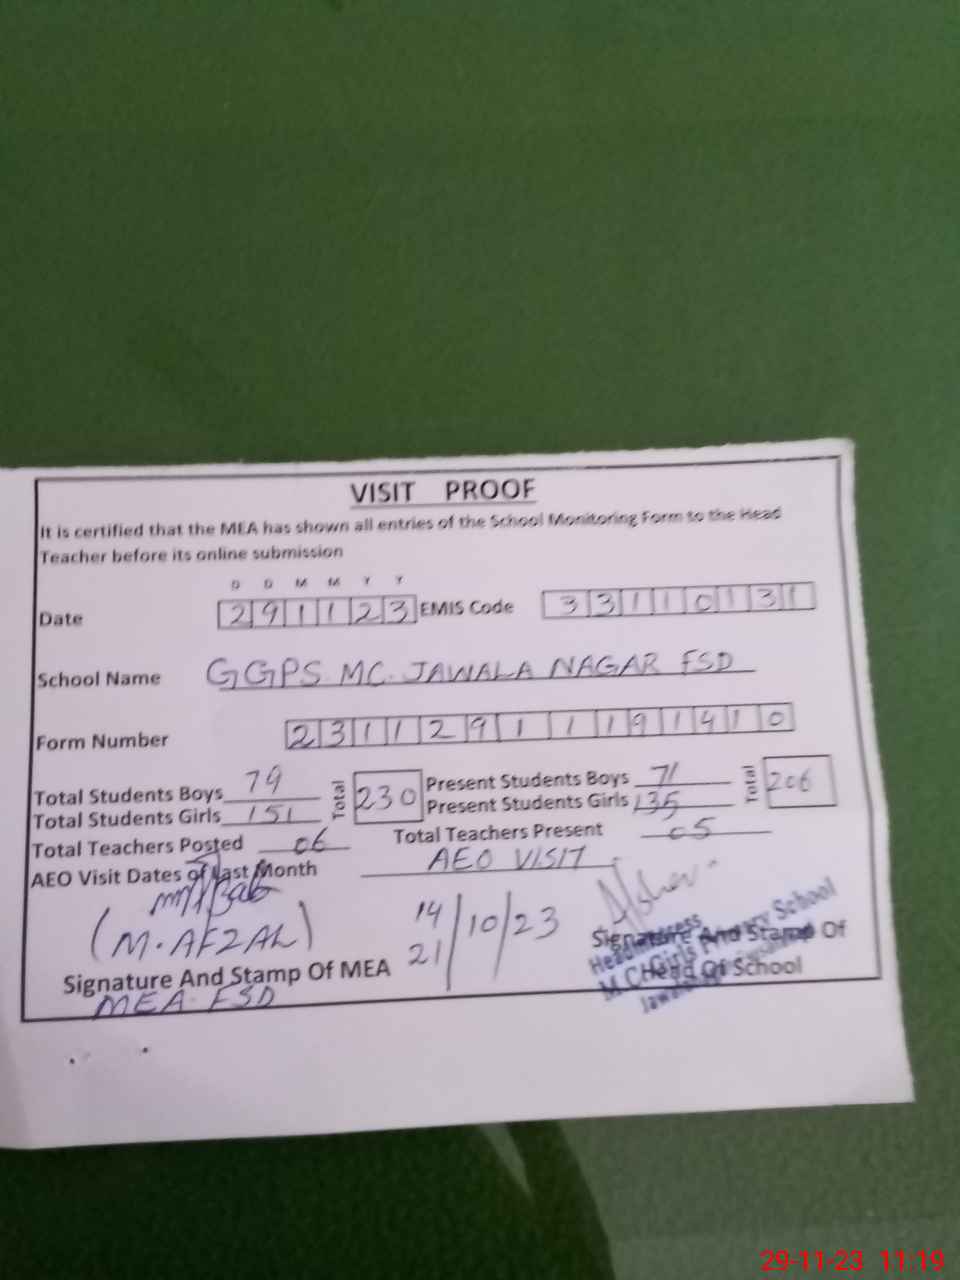 VISIT PROOF
It is certified that the MEA has shown all entries of the School Monitoring Form to the Head
Teacher before its online submission
D D M M Y Y
Date 291123 EMIS Code 33110131
School Name GGPS MC. JAWALA NAGAR FSD
Form Number 23112911191410
Total Students Boys 79 Total 230 Present Students Boys 71 Total 206
Total Students Girls 151 Present Students Girls 135
Total Teachers Posted 06 Total Teachers Present 05
AEO Visit Dates of Last Month AEO VISIT
(M. AFZAL) 14 21 /10/23
Signature And Stamp Of MEA Signature And Stamp Of Head Of School
MEA FSD
Headmistress
Girls Primary School
M.C
29-11-23 11:19